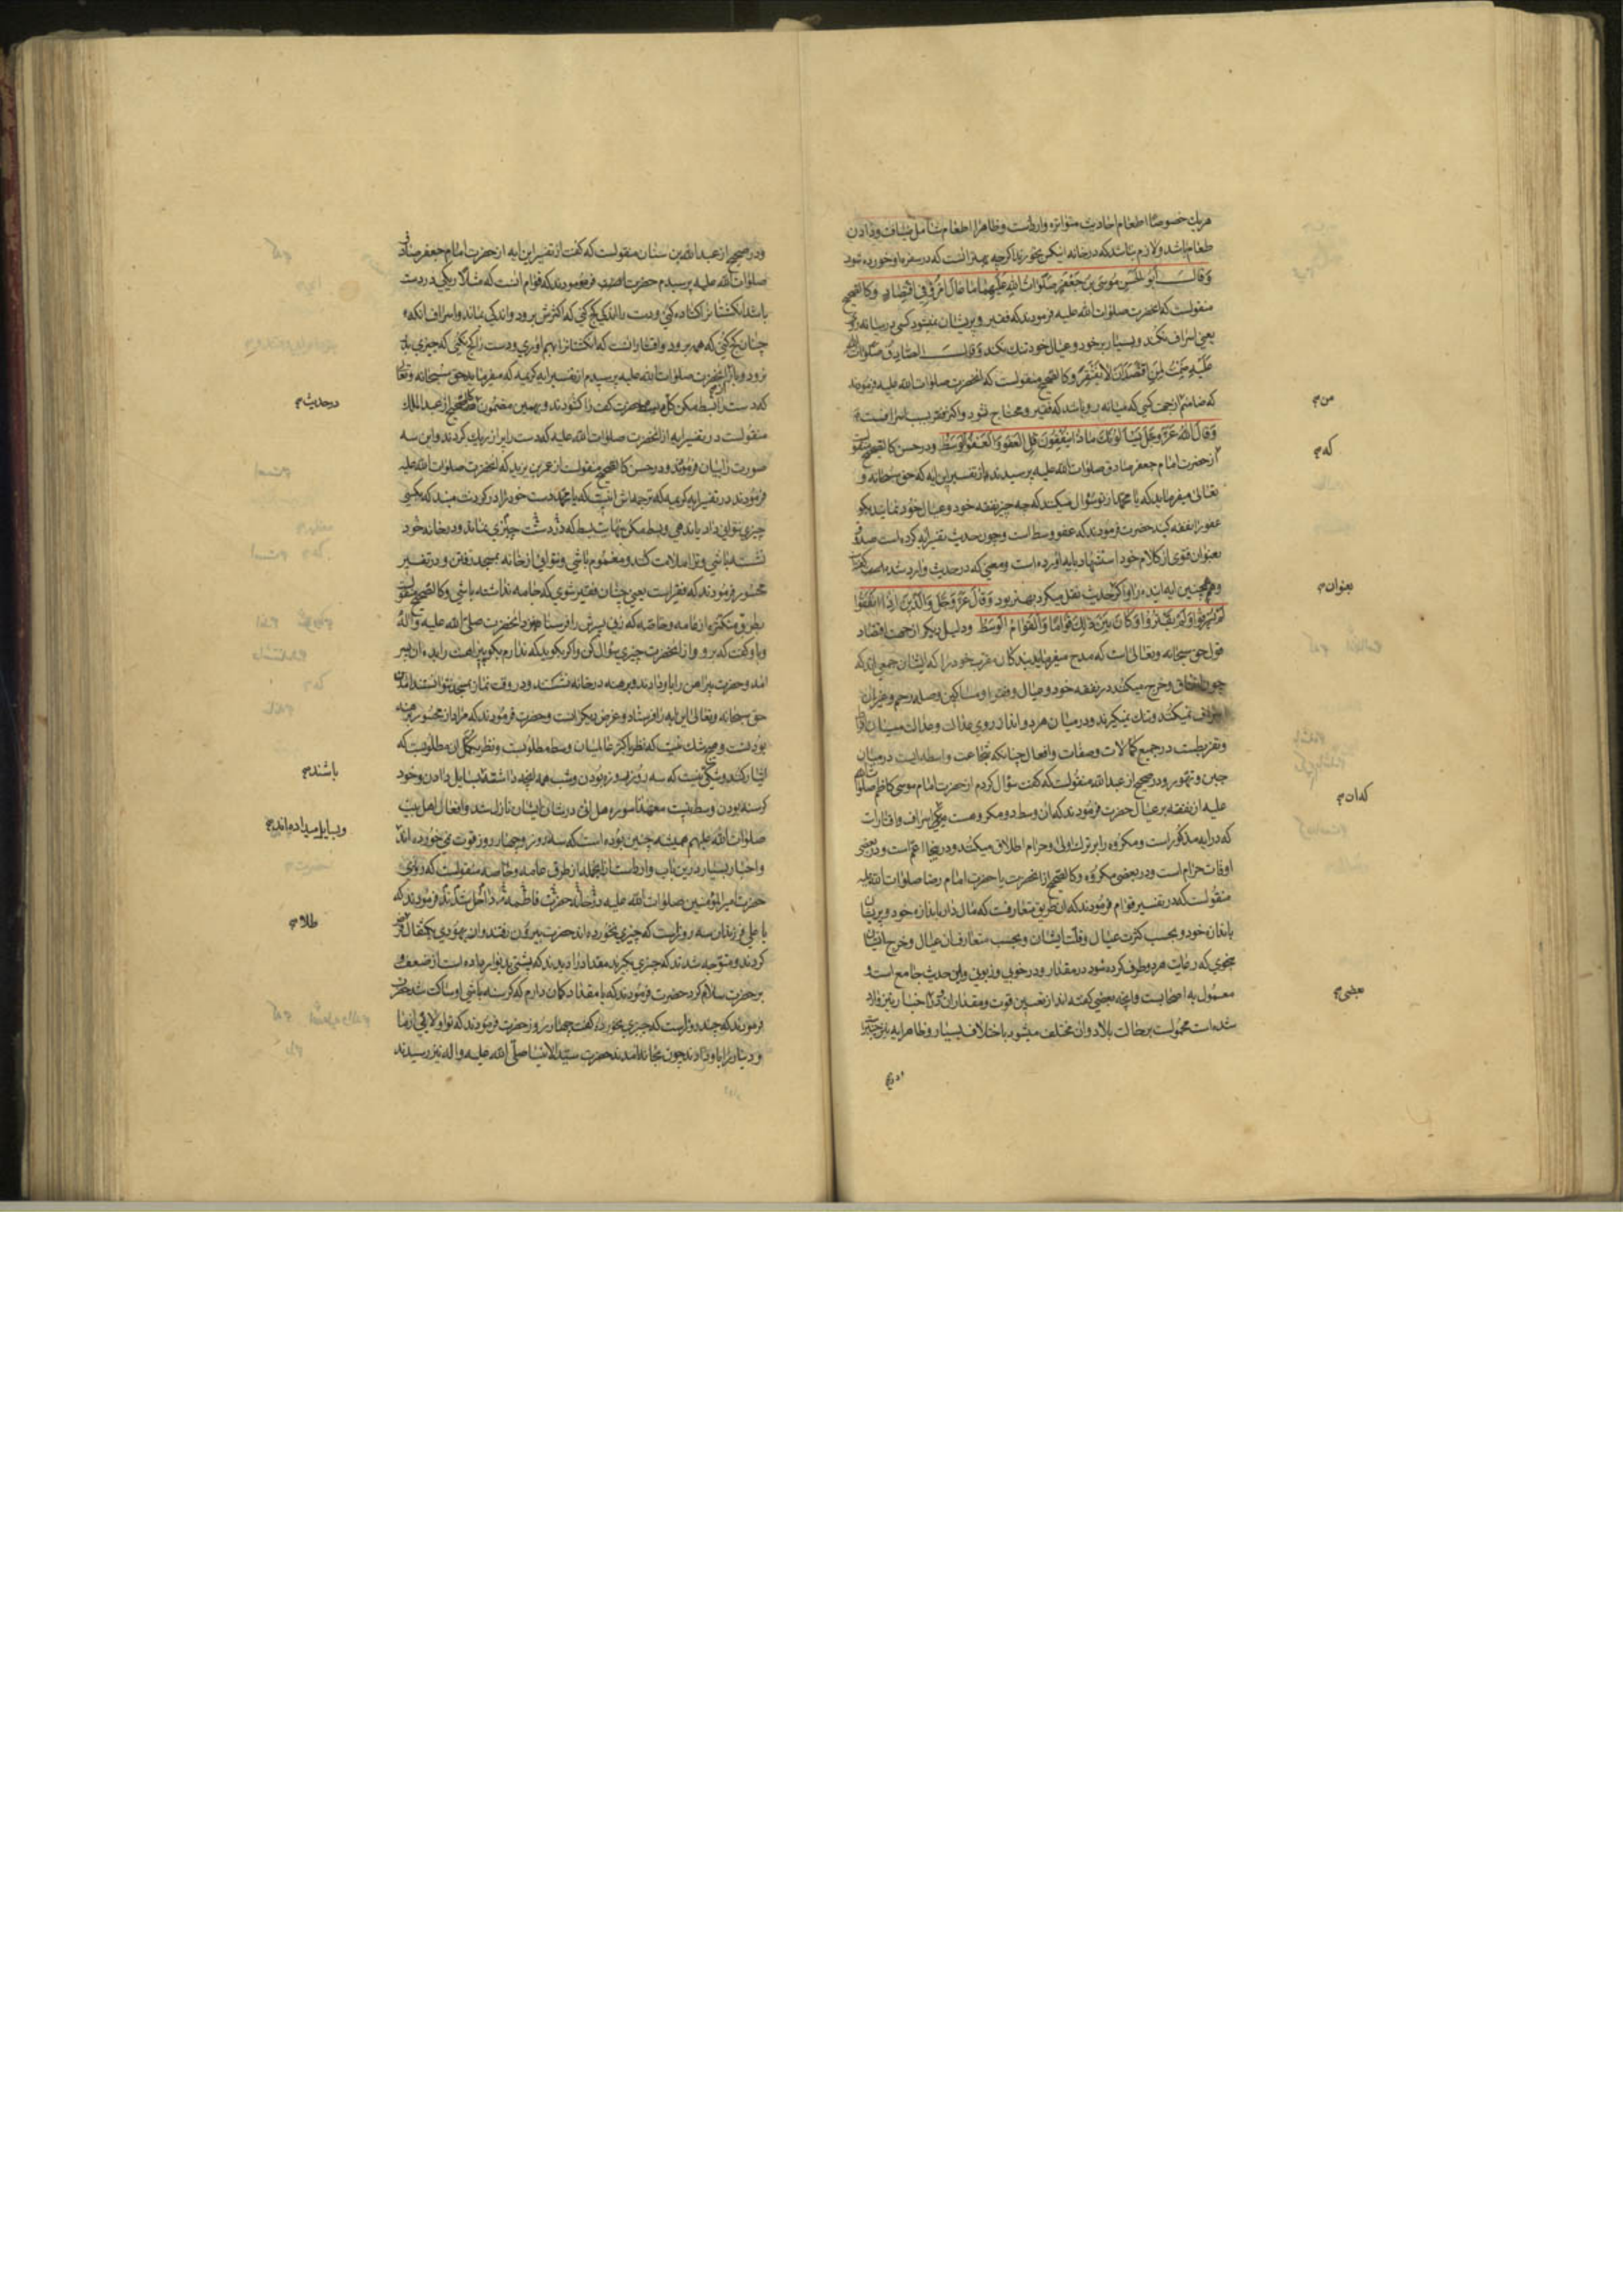 هریك خصوصا اطعام احادیث متواتره وارداست وظاهرا اطعام شامل ضیافت ودادن
طعام باشد ولازم نباشد که درخانه ایشکس بخورند اکرچه بهتر انست که درسفره او خورده شود
وَقالَ أَبُو الحَسَنِ مُوسَى بنُ جَعْفَرٍ صَلَوَاتُ اللهِ عَلَيْهِمَا مَا عَالَ امْرُؤٌ فِي اقْتِصَادٍ وکالصحیح
منقولست که انحضرت صلوات الله علیه فرمودند که فقیر وپریشان نمیشود کسی که میانه رو
یعنی اسراف نکند وبسیار برخود وعیال خود تنك نکند وَقالَ الصَّادِقُ صَلَوَاتُ اللهِ
عَلَيْهِ ضَمِنْتُ لِمَنِ اقْتَصَدَ أَنْ لَا يَفْتَقِرَ وکالصحیح منقولست که انحضرت صلوات الله علیه فرمودند
که ضامنم از جهت کسی که میانه رو باشد که فقیر ومحتاج نشود واکثر فقر بسبب اسرافست
وَقالَ اللهُ عَزَّ وَجَلَّ يَسْأَلُونَكَ مَاذَا يُنْفِقُونَ قُلِ الْعَفْوَ وَالْعَفْوُ الْوَسَطُ ودر حسن کالصحیح منقولست
از حضرت امام جعفر صادق صلوات الله علیه پرسیدند از تفسیر این ایه که حق سبحانه و
تعالی میفرماید که یا محمد از تو سؤال میکنند که چه چیز نفقه خود وعیال خود نمایند بکو
عفو را نفقه کنید حضرت فرمودند که عفو وسط است وچون حدیث تفسیر ایه کرده است صدوق
بعنوان فتوی از کلام خود استشهاد بایه اورده است ومعنی که در حدیث وارد شده است
وهمچنین ایه اینده را واکر حدیث نقل میکرد بهتر بود وَقَالَ عَزَّ وَجَلَّ وَالَّذِينَ إِذَا أَنْفَقُوا
لَمْ يُسْرِفُوا وَلَمْ يَقْتُرُوا وَكَانَ بَيْنَ ذَلِكَ قَوَامًا وَالْقَوَامُ الْوَسَطُ ودلیل دیکر از جهت اقتصاد
قول حق سبحانه وتعالی است که مدح میفرماید بندکان مقرب خود را که ایشان جمعی اند که
چون انفاق وخرج میکنند در نفقه خود وعیال وفقرا ومساکین وصله رحم وغیر ان
اسراف نمیکنند وتنك نمیکیرند ودر میان هر دو انفاق روی عدالت وعدالت میان افراط
وتفریطست در جمیع کمالات وصفات وافعال چنانکه شجاعت واسطه ایست در میان
جبن وتهور ودر صحیح از عبدالله منقولست که کفت سؤال کردم از حضرت امام موسی کاظم صلوات الله
علیه از نفقه بر عیال حضرت فرمودند که ان وسط دو مکروهست یکی اسراف واقتارات
که در ایه مذکور است ومکروه را بر ترك اولی وحرام اطلاق میکنند ودر اینجا اعم است ودر بعضی
اوقات حرام است ودر بعضی مکروه وکالصحیح از انحضرت یا حضرت امام رضا صلوات الله علیه
منقولست که در تفسیر قوام فرمودند که ان طریق متعارفست که مال دار باندازه خود وپریشان
باندازه خود وبحسب کثرت عیال وقلت ایشان وبحسب متعارف ان عیال وخرج ایشان
بنحوی که رعایت هر دو طرف کرده شود در مقدار ودر خوبی وزبونی واین حدیث جامع است و
معمول به اصحابست وانچه بعضی کفته اند از تعیین قوت ومقدار ان ودر اخبار نیز وارد
شده است محمولست بر حالت بلاد وان مختلف میشود باختلاف بسیار وظاهر ایه نیز چنین
ودر صحیح
من
که
بعنوان
که ان
بعضی
ودر صحیح از عبدالله بن سنان منقولست که کفت از تفسیر این ایه از حضرت امام جعفر صادق
صلوات الله علیه پرسیدم حضرت فرمودند که قوام انست که مثلا ریکی در دست
باشد انکشتانرا کشاده کنی ودست را اندکی کج کنی که اکثرش برود واندکی بماند واسراف انکه
چنان کج کنی که همه برود واقتار انست که انکشتانرا بهم اوری ودست را کج نکنی که چیزی
نرود وباز از انحضرت صلوات الله علیه پرسیدم از تفسیر ایه کریمه که میفرماید حق سبحانه وتعالی
که دست را بسط مکن کل بسط حضرت کف را کشودند وبهمین مضمون در صحیح از عبد الملك
منقولست در تفسیر ایه از انحضرت صلوات الله علیه که دست را پر از ریك کردند واین سه
صورت را بیان فرمودند ودر حسن کالصحیح منقولست از عمر بن یزید که انحضرت صلوات الله علیه
فرمودند در تفسیر ایه کریمه که ترجمه اش اینست که یا محمد دست خود را در کردنت مبند که بکسی
چیزی نتوانی داد یا ندهی وبسط مکن نهایت بسط که در دستت چیزی نماند ودر خانه خود
نشسته باشی وترا ملامت کنند ومغموم باشی ونتوانی از خانه بمسجد رفتن ودر تفسیر
محسور فرمودند که فقر است یعنی چنان فقیر شوی که جامه نداشته باشی وکالصحیح منقولست
بطرق متکثره از عامه وخاصه که زنی پسرش را فرستاد نزد انحضرت صلی الله علیه واله
وباو کفت که برو واز انحضرت چیزی سؤال کن واکر بکوید که ندارم بکو پیراهنت را بده ان پسر
امد وحضرت پیراهن را باو دادند وبرهنه در خانه نشستند ودر وقت نماز بمسجد نتوانستند امدن
حق سبحانه وتعالی این ایه را فرستاد وعرض دیکر انست وحضرت فرمودند که مراد از محسور برهنه
بودنست وشك نیست که نظر باکثر عالمیان وسط مطلوبست ونظر بکمل ان مطلوبست که
ایثار کنند وشکی نیست که سه روز روزه بودن وشب همه انچه داشته بسایل دادن وخود
کرسنه بودن وسط نیست معهذا سوره هل اتی در شان ایشان نازل شد وافعال اهل بیت
صلوات الله علیهم همیشه چنین بوده است که سه روز وچهار روز قوت نمی خورده اند
واخبار بسیار در این باب وارد است از انجمله از طرق عامه وخاصه منقولست که روزی
حضرت امیر المؤمنین صلوات الله علیه در خانه حضرت فاطمه داخل شدند فرمودند که
یا علی فرزندان سه روز است که چیزی نخورده اند حضرت بیرون رفتند وان یهودی یکمثقال قرض
کردند ومتوجه شدند که چیزی بکیرند مقداد را دیدند که پشتی بدیوار نهاده است از ضعف و
بر حضرت سلام کرد حضرت فرمودند که یا مقداد کمان دارم که کرسنه باشی او ساکت شد حضرت
فرمودند که چند روز است که چیزی نخورده کفت چهار روز حضرت فرمودند که تو اولائی از ما
ودینار را باو دادند چون بخانه امدند حضرت سید الانبیا صلی الله علیه واله نیز رسیدند
در حدیث
باشند
وبسایل میداده اند
طلا